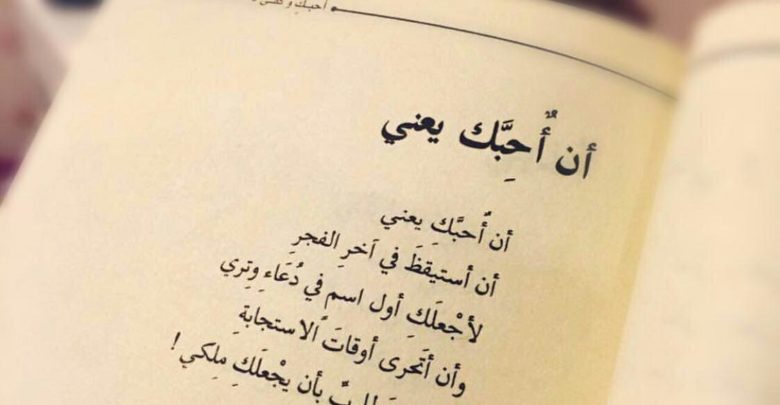 أحبك و
أن أُحِبَّك يعني
أن أُحبَّكِ يعني
أن أستيقظَ في آخرِ الفجرِ
لأجْعلَكِ أول اسم في دُعَاءِ وِتري
وأن أتَحرى أوقاتَ الاستجابةِ
بأن يجْعلَكِ مِلكي !